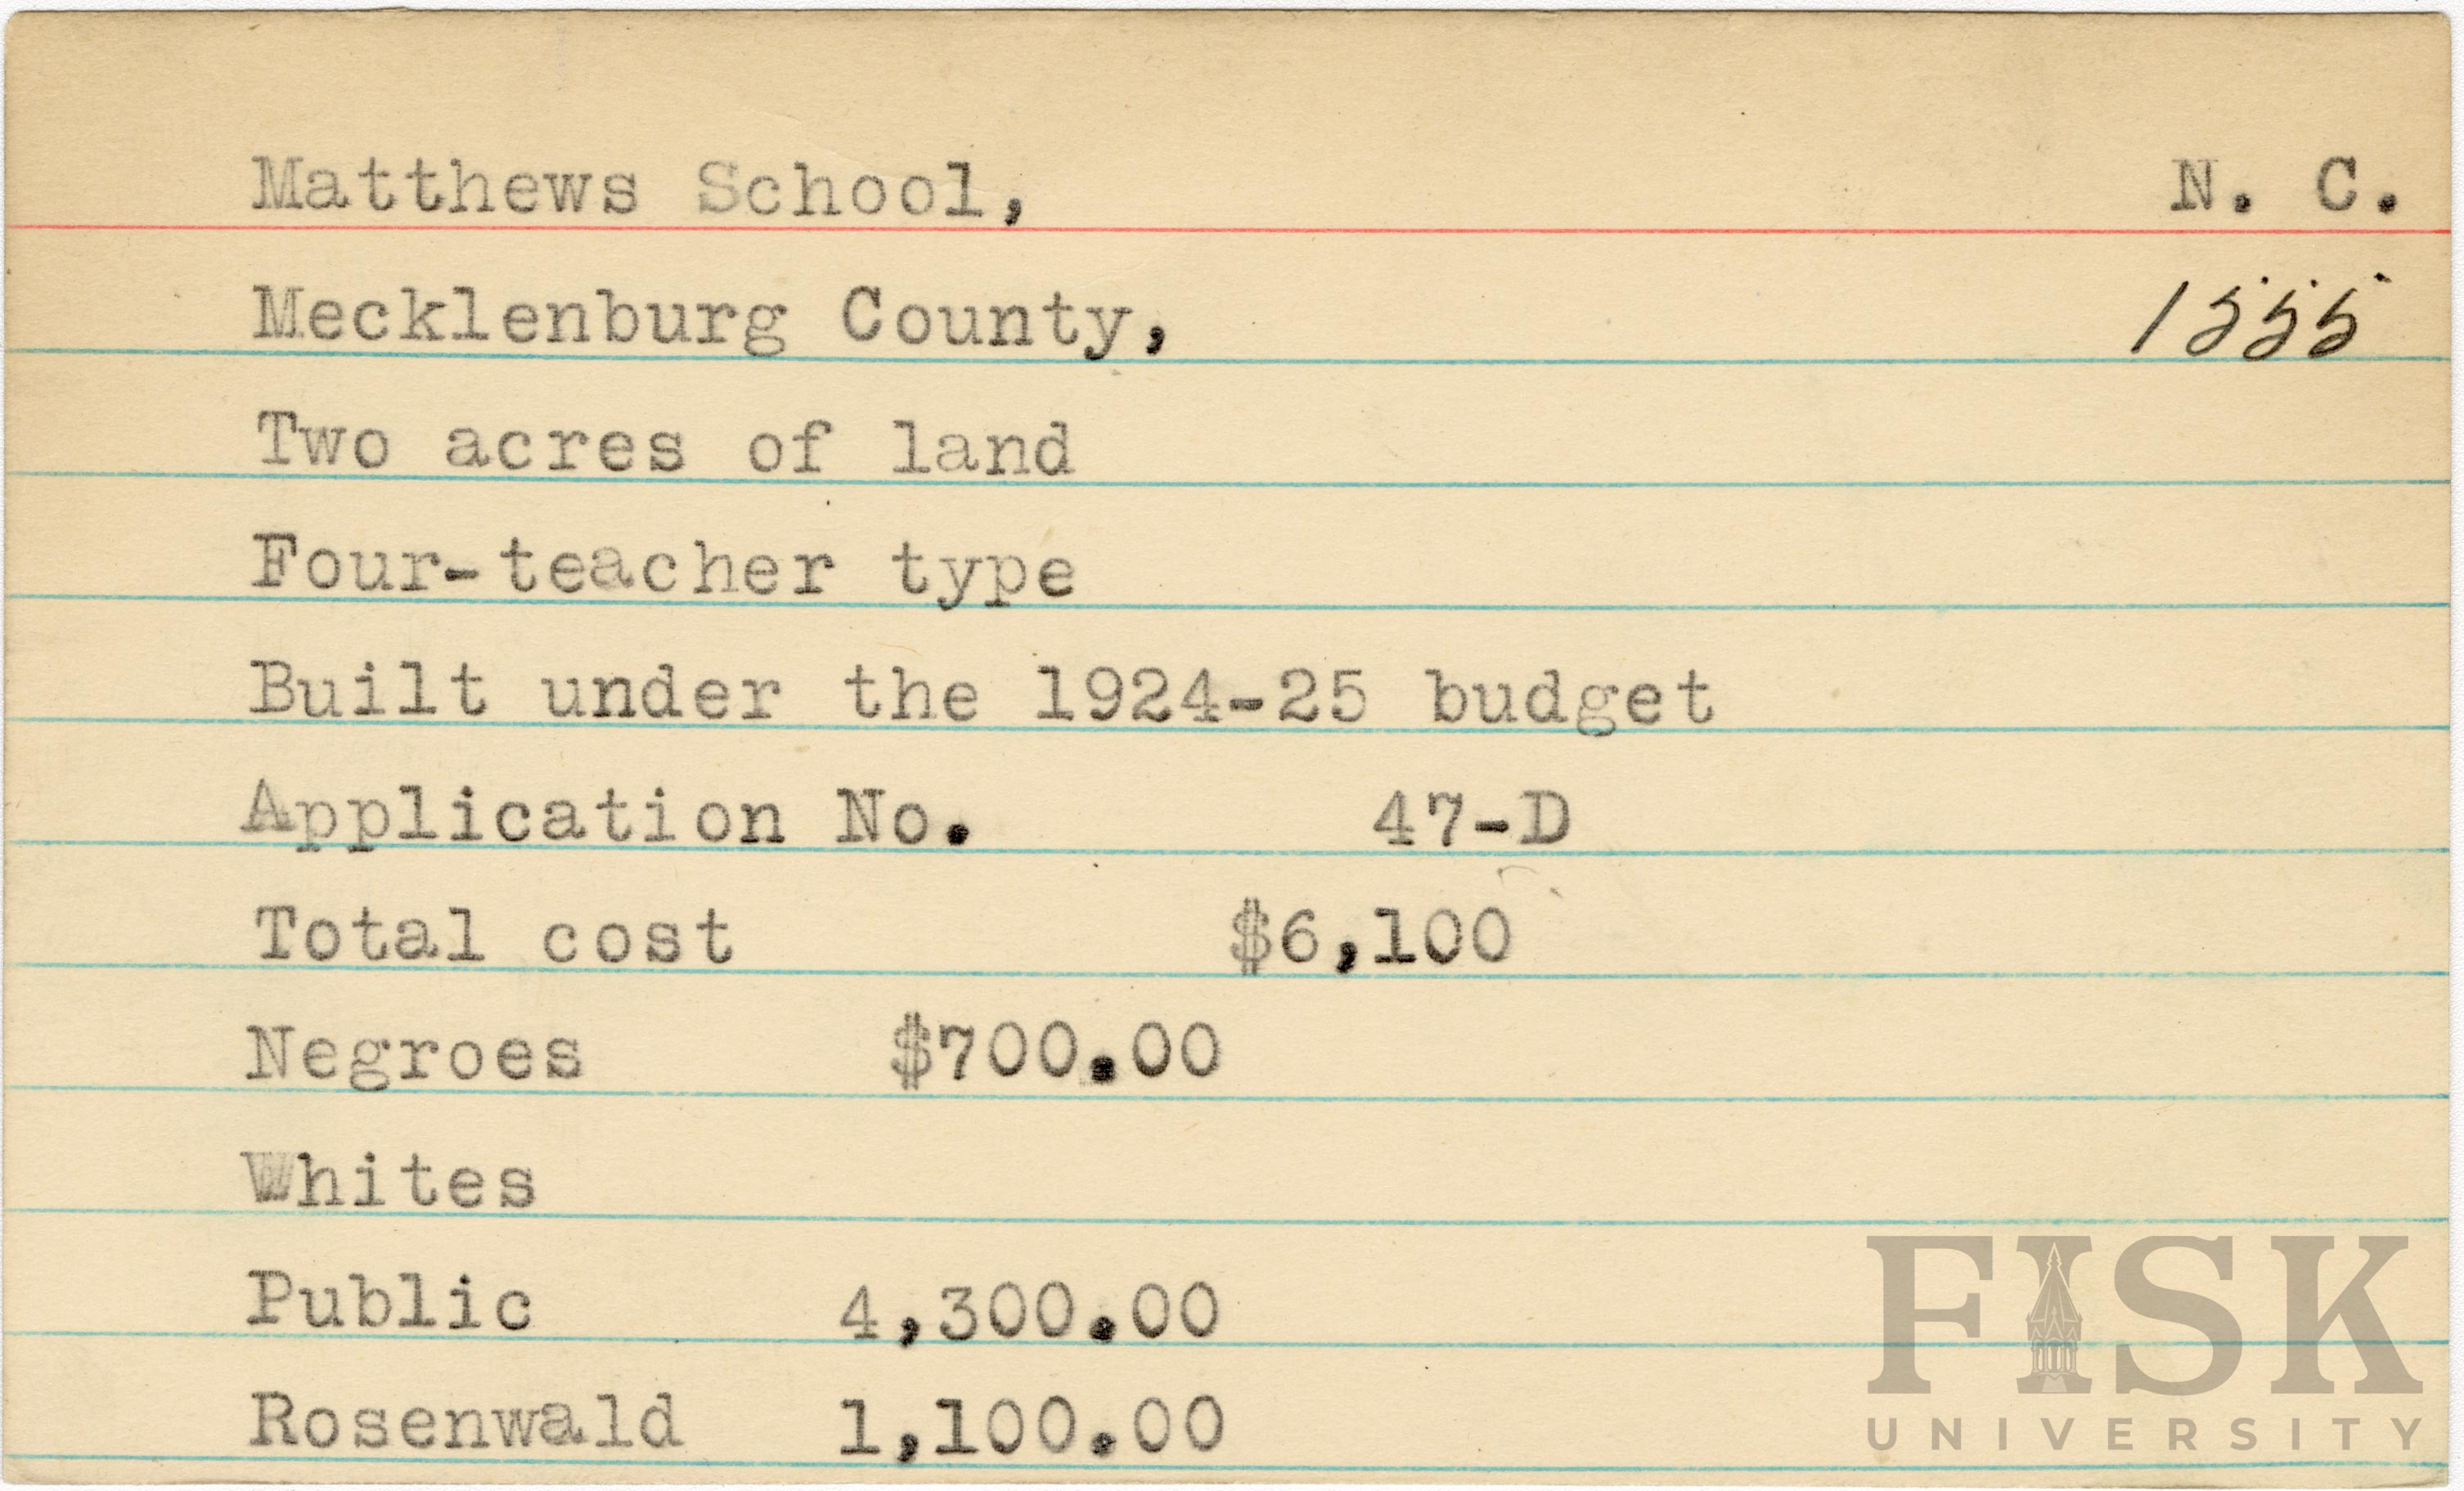 Matthews School, N. C.
Mecklenburg County, 1555
Two acres of land
Four-teacher type
Built under the 1924-25 budget
Application No. 47-D
Total cost $6,100
Negroes $700.00
Whites
Public 4,300.00
Rosenwald 1,100.00
FISK
UNIVERSITY